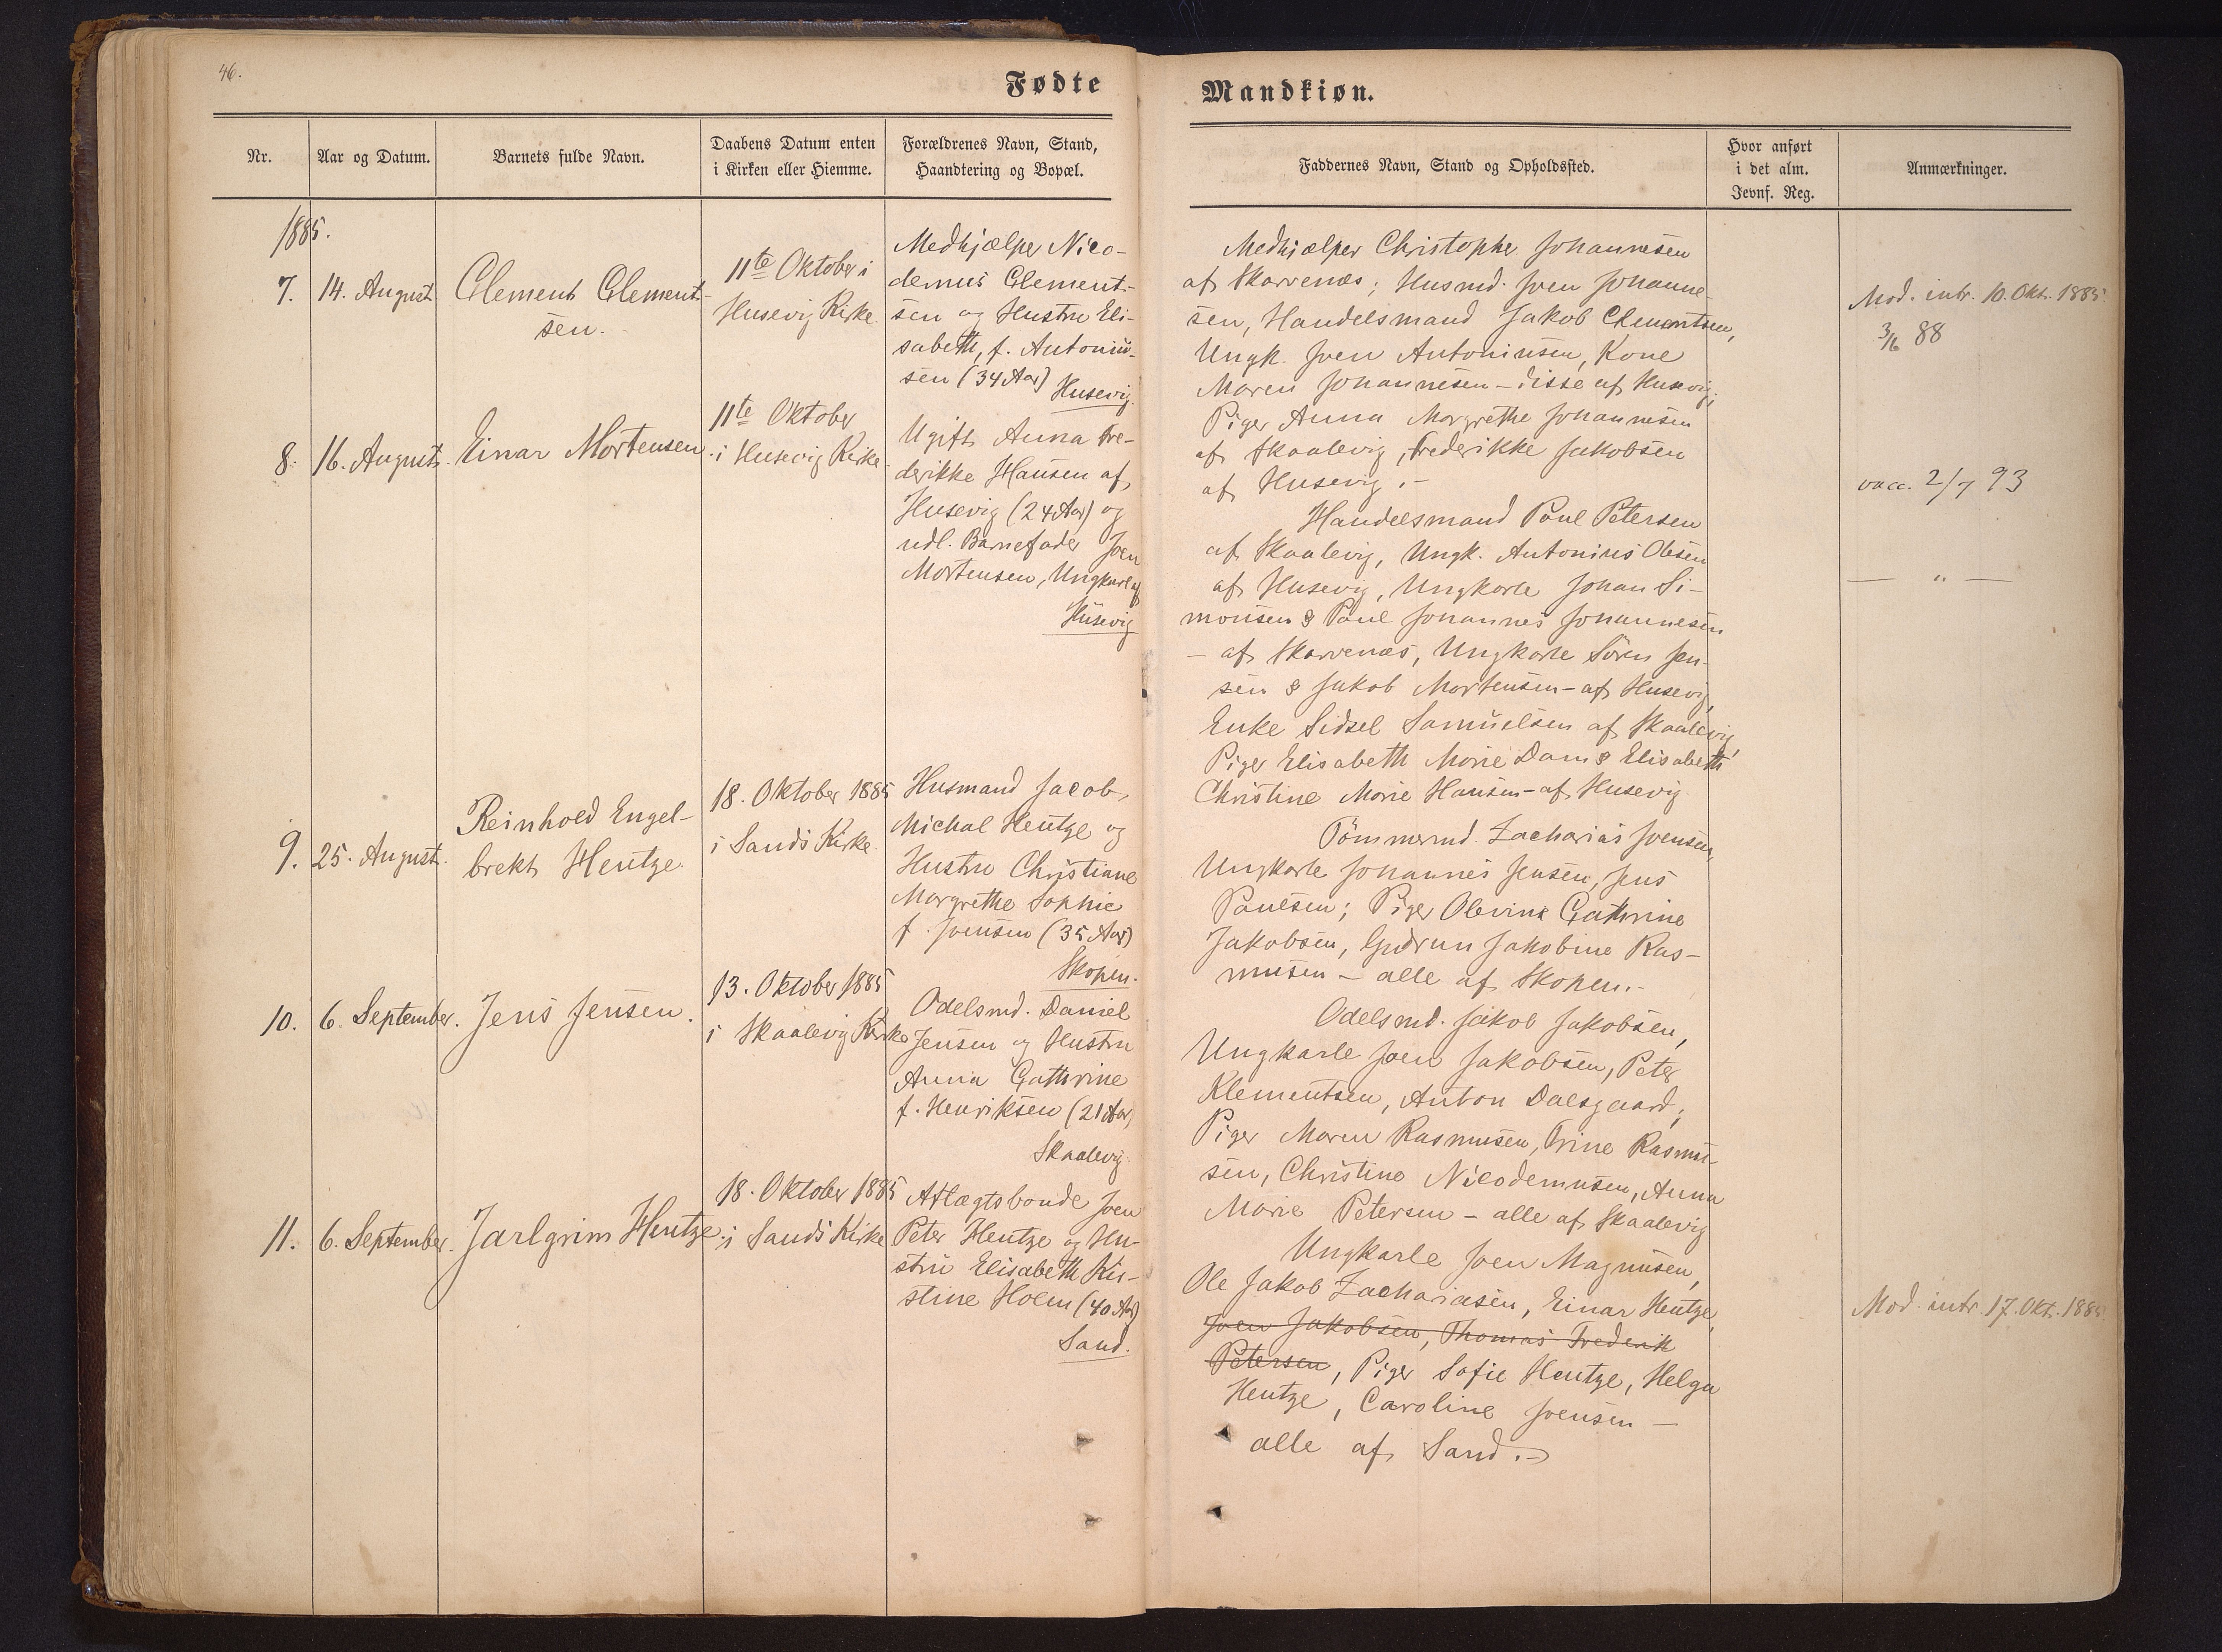 46.
Fødte
Mandkiøn.
Nr.
Aar og Datum.
Barnets fulde Navn.
Daabens Datum enten
i Kirken eller Hiemme.
Forældrenes Navn, Stand,
Haandtering og Bopæl.
Faddernes Navn, Stand og Opholdssted.
Hvor anført
i det alm.
Jevnf. Reg.
Anmærkninger.
1885.
7.
14. August
Clement Clement-
sen.
11te Oktober i
Husevig Kirke.
Medhjælper Nico-
demus Clement-
sen og Hustru Eli-
sabeth, f. Antoniu-
sen (34 Aar)
Husevig.
Medhjælper Christopher Johannesen
af Skarvenæs; Husmd. Joen Johanne-
sen, Handelsmand Jakob Clementsen,
Ungk. Joen Antoniusen, Kone
Maren Johannesen - disse af Husevig;
Piger Anna Margrethe Johannesen
af Skaalevig, Frederikke Jakobsen
af Husevig.-
Mod. intr. 10. Okt. 1885.
3/6 88
8.
16. August.
Einar Mortensen.
11te Oktober
i Husevig Kirke.
Ugift Anna Fre-
derikke Hansen af
Husevig (24 Aar) og
udl. Barnefader Joen
Mortensen, Ungkarl af
Husevig
Handelsmand Poul Petersen
af Skaalevig, Ungk. Antonius Olesen
af Husevig, Ungkarle Johan Si-
monsen & Poul Johannes Johannesen
- af Skarvenæs, Ungkarle Sören Jen-
sen & Jakob Mortensen - af Husevig,
Enke Sidsel Samuelsen af Skaalevig,
Piger Elisabeth Marie Dam & Elisabeth
Christine Marie Hansen - af Husevig.
vacc. 2/7 93
— „ —
9.
25. August.
Reinhold Engel-
brekt Hentze.
18. Oktober 1885
i Sands Kirke.
Husmand Jacob
Michal Hentze og
Hustru Christiane
Margrethe Sophie
f. Joensen (35 Aar)
Skopen.
Tömmermd. Zacharias Joensen,
Ungkarle Johannes Jensen, Jens
Poulsen; Piger Olevine Cathrine
Jakobsen, Gudrun Jakobine Ras-
musen - alle af Skopen.-
10.
6. September.
Jens Jensen.
13. Oktober 1885
i Skaalevig Kirke
Odelsmd. Daniel
Jensen og Hustru
Anna Cathrine
f. Henriksen (21 Aar)
Skaalevig.
Odelsmd. Jakob Jakobsen,
Ungkarle Joen Jakobsen, Peter
Klementsen, Anton Dalsgaard;
Piger Maren Rasmusen, Trine Rasmu-
sen, Christine Nicodemusen, Anna
Marie Petersen - alle af Skaalevig
11.
6. September.
Jarlgrim Hentze.
18. Oktober 1885
i Sands Kirke
Aftægtsbonde Joen
Peter Hentze og Hu-
stru Elisabeth Kir-
stine Holm (40 Aar)
Sand.
Ungkarle Joen Magnusen,
Ole Jakob Zachariasen, Einar Hentze,
Joen Jakobsen, Thomas Frederik
Petersen, Piger Sofie Hentze, Helga
Hentze, Caroline Joensen -
alle af Sand.-
Mod. intr. 17. Okt. 1885